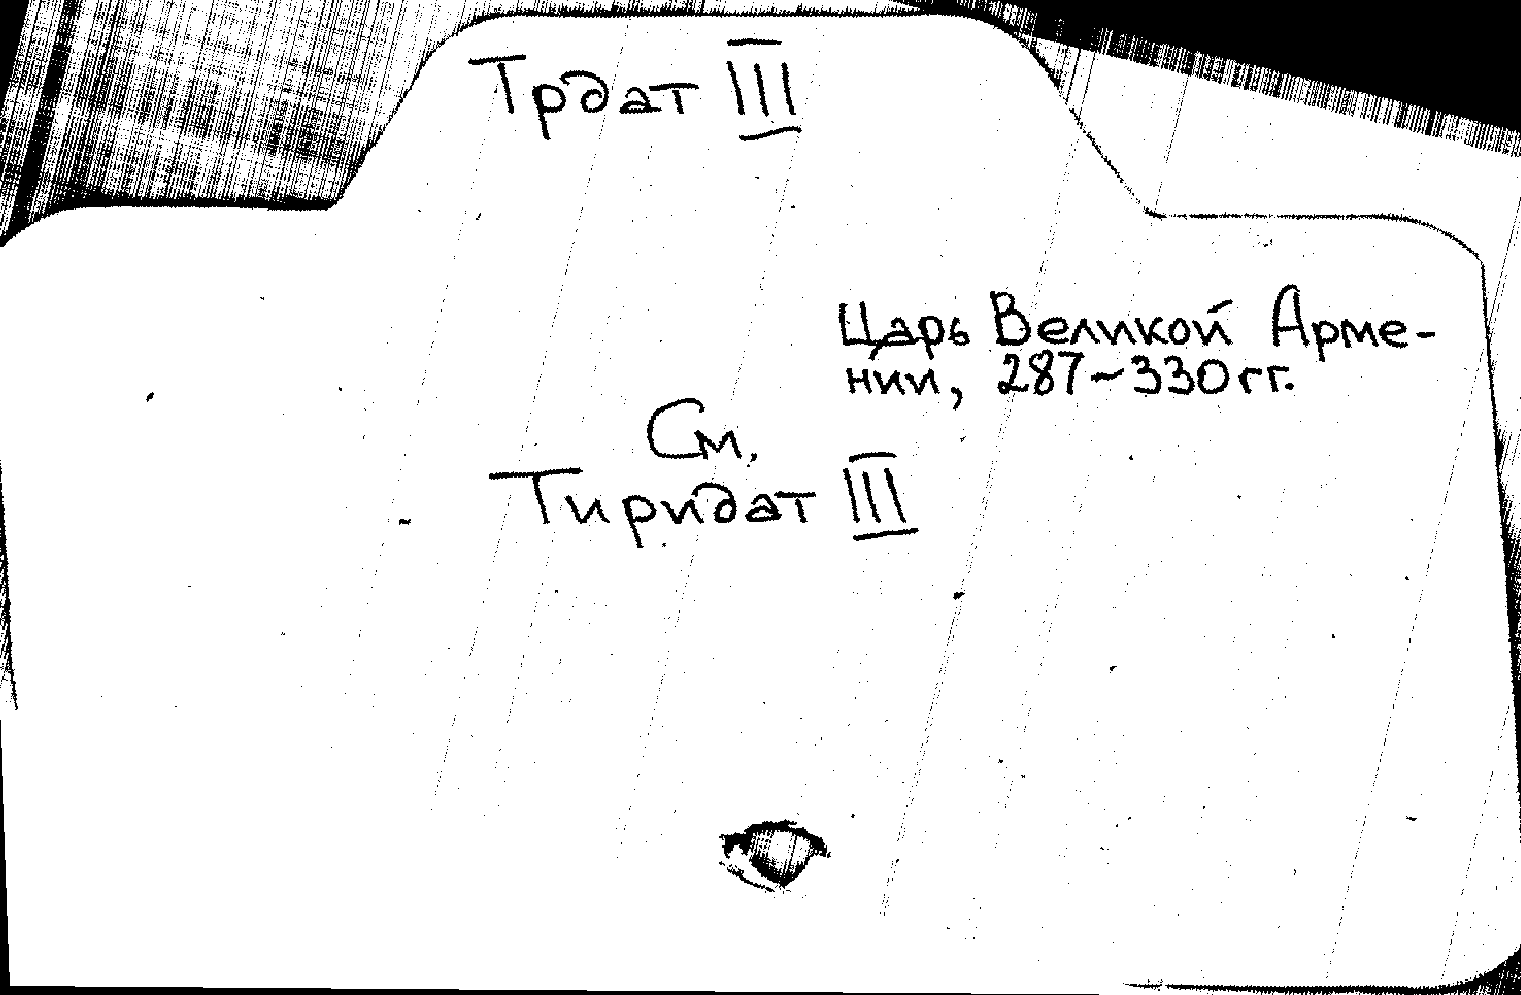 Трдат III
Царь Великой Арме-
нии, 287-330 гг.
См.
Тиридат III